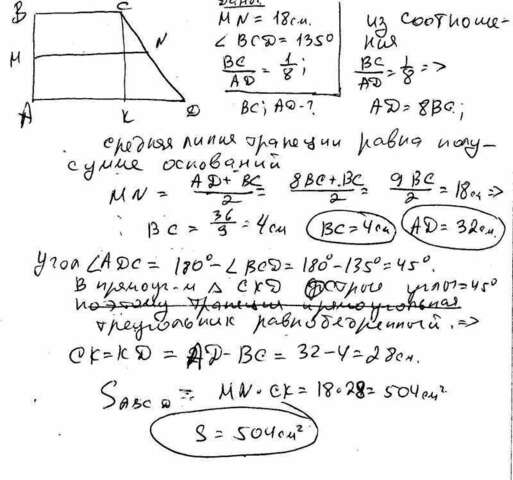 Дано:
B C
M N
A K D
MN = 18 см.
∠ BCD = 135°
BC/AD = 1/8;
BC; AD - ?
из соотноше-
ния
BC/AD = 1/8 =>
AD = 8BC;
средняя линия трапеции равна полу-
сумме оснований
MN = AD + BC/2 = 8BC + BC/2 = 9BC/2 = 18 см =>
BC = 36/9 = 4 см BC = 4 см AD = 32 см.
Угол ∠ADC = 180° - ∠BCD = 180° - 135° = 45°.
В прямоуг-м Δ CKD острые углы = 45°
поэтому трапеция прямоугольная
треугольник равнобедренный. =>
CK = KD = AD - BC = 32 - 4 = 28 см.
S ABCD = MN · CK = 18 · 28 = 504 см²
S = 504 см²